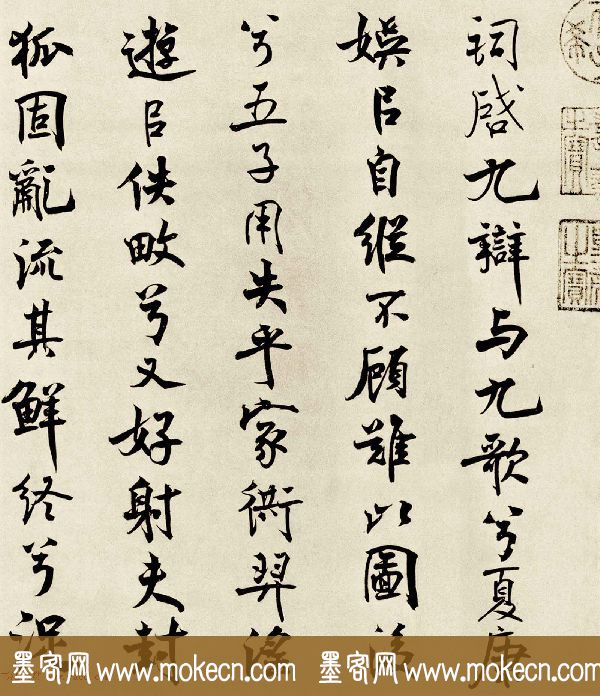 詞啓九辯与九歌兮夏康
娛㠯自縱不顧難以圖後
兮五子用失乎家衖羿淫
遊㠯佚畋兮又好射夫封
狐固亂流其鮮終兮浞
墨客网 www.mokecn.com 墨客网 www.mokecn.com